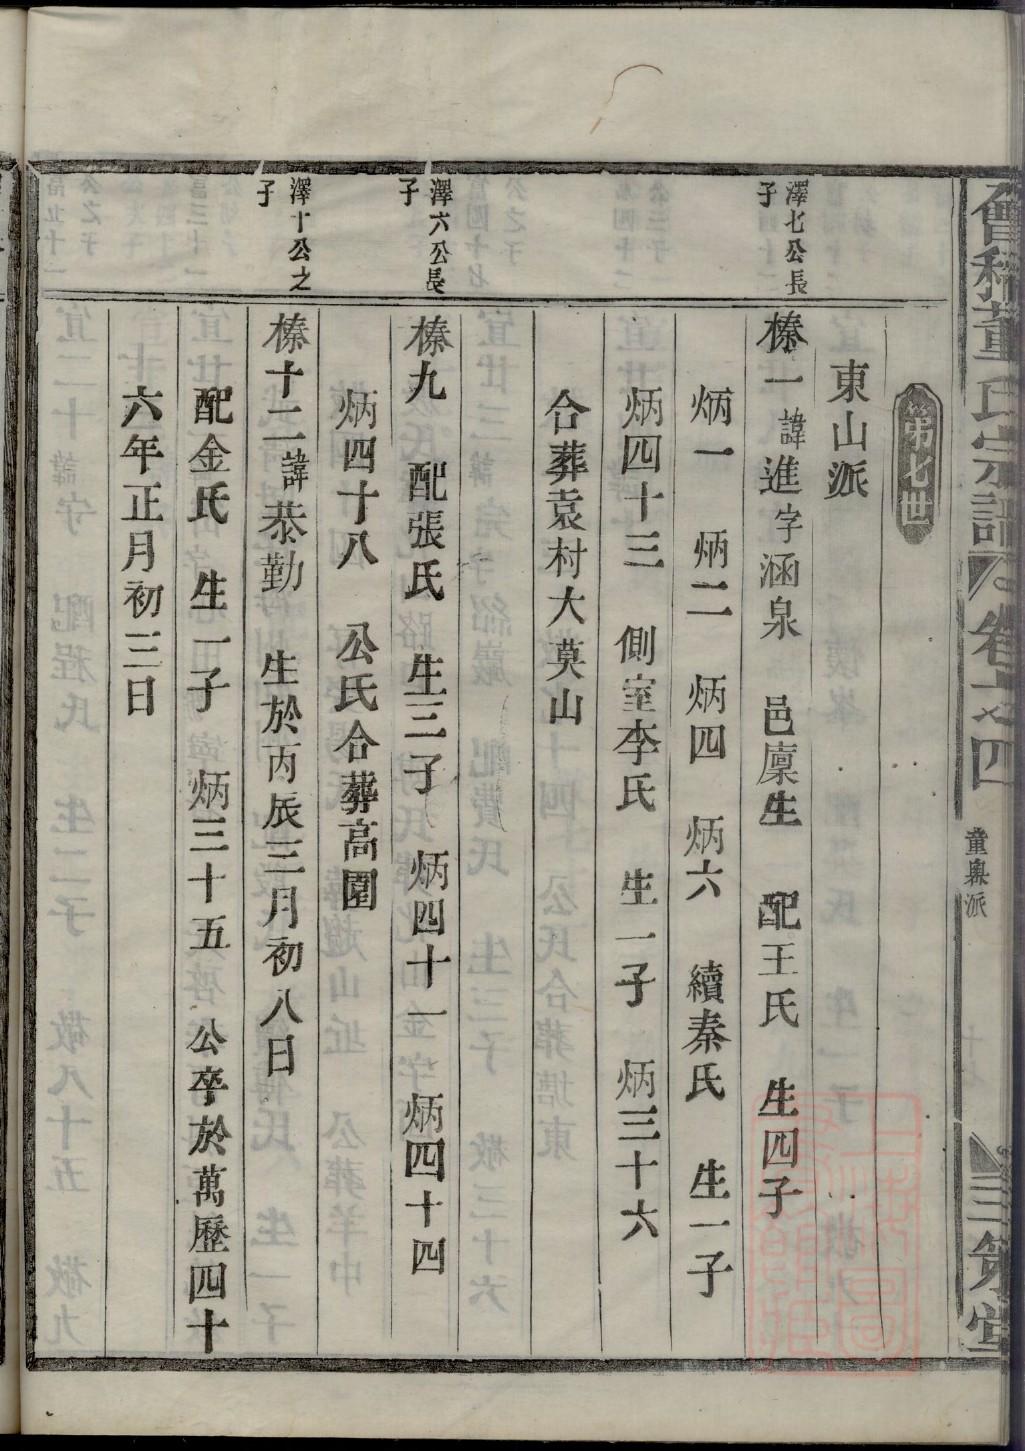 會稽董氏宗譜 卷十之四
董輿派
三策堂
第七世
東山派
澤七公長
子
榛一 諱進字涵泉 邑廩生 配王氏 生四子
炳一 炳二 炳四 炳六 續秦氏 生一子
炳四十三 側室李氏 生一子 炳三十六
合葬袁村大莫山
澤六公長
子
榛九 配張氏 生三子 炳四十一 炳四十四
炳四十八 公氏合葬高園
澤十公之
子
榛十二諱恭勤 生於丙辰三月初八日
配金氏 生一子 炳三十五 公卒於萬歷四十
六年正月初三日